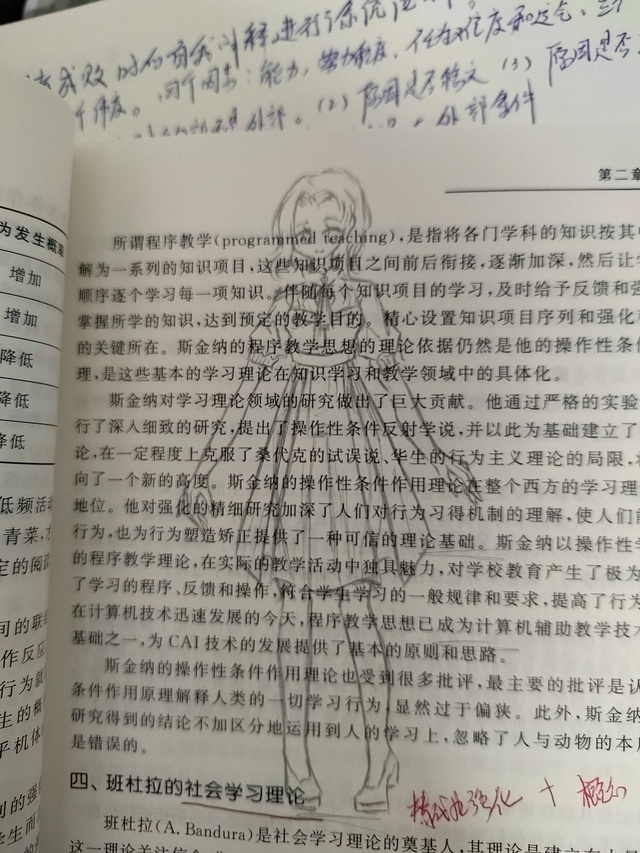 成败时
个维度。四个因素：能力，努力程度，任务难度和运气，三
外部。（2）原因是否稳定（3）原因是否
外部条件
第二章
为发生概率
增加
增加
降低
降低
降低
低频活动
青菜,
定的阅读
间的联结
作反应
行为
生的概
平机体
列的强
学生而
的
所谓程序教学(programmed teaching),是指将各门学科的知识按其中
解为一系列的知识项目,这些知识项目之间前后衔接,逐渐加深,然后让学
顺序逐个学习每一项知识。伴随每个知识项目的学习,及时给予反馈和强
掌握所学的知识,达到预定的教学目的。精心设置知识项目序列和强化程
的关键所在。斯金纳的程序教学思想的理论依据仍然是他的操作性条件
理,是这些基本的学习理论在知识学习和教学领域中的具体化。
斯金纳对学习理论领域的研究做出了巨大贡献。他通过严格的实验
行了深入细致的研究,提出了操作性条件反射学说,并以此为基础建立了
论,在一定程度上克服了桑代克的试误说、华生的行为主义理论的局限,将
向了一个新的高度。斯金纳的操作性条件作用理论在整个西方的学习理
地位。他对强化的精细研究加深了人们对行为习得机制的理解,使人们能
行为,也为行为塑造矫正提供了一种可信的理论基础。斯金纳以操作性学
的程序教学理论,在实际的教学活动中独具魅力,对学校教育产生了极为
了学习的程序、反馈和操作,符合学生学习的一般规律和要求,提高了行为
在计算机技术迅速发展的今天,程序教学思想已成为计算机辅助教学技术
基础之一,为CAI技术的发展提供了基本的原则和思路。
斯金纳的操作性条件作用理论也受到很多批评,最主要的批评是认
条件作用原理解释人类的一切学习行为,显然过于偏狭。此外,斯金纳
研究得到的结论不加区分地运用到人的学习上,忽略了人与动物的本质
是错误的。
四、班杜拉的社会学习理论
替代性强化 + 概念
班杜拉(A. Bandura)是社会学习理论的奠基人,其理论是建立在